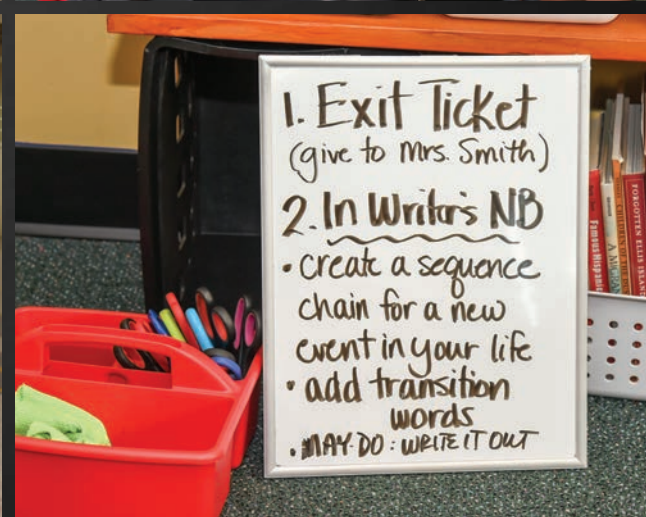 1. Exit Ticket
(give to Mrs. Smith)
2. In Writer's NB
• create a sequence
chain for a new
event in your life
• add transition
words
• MAY DO: WRITE IT OUT
FORGOTTEN ELLIS ISLAND